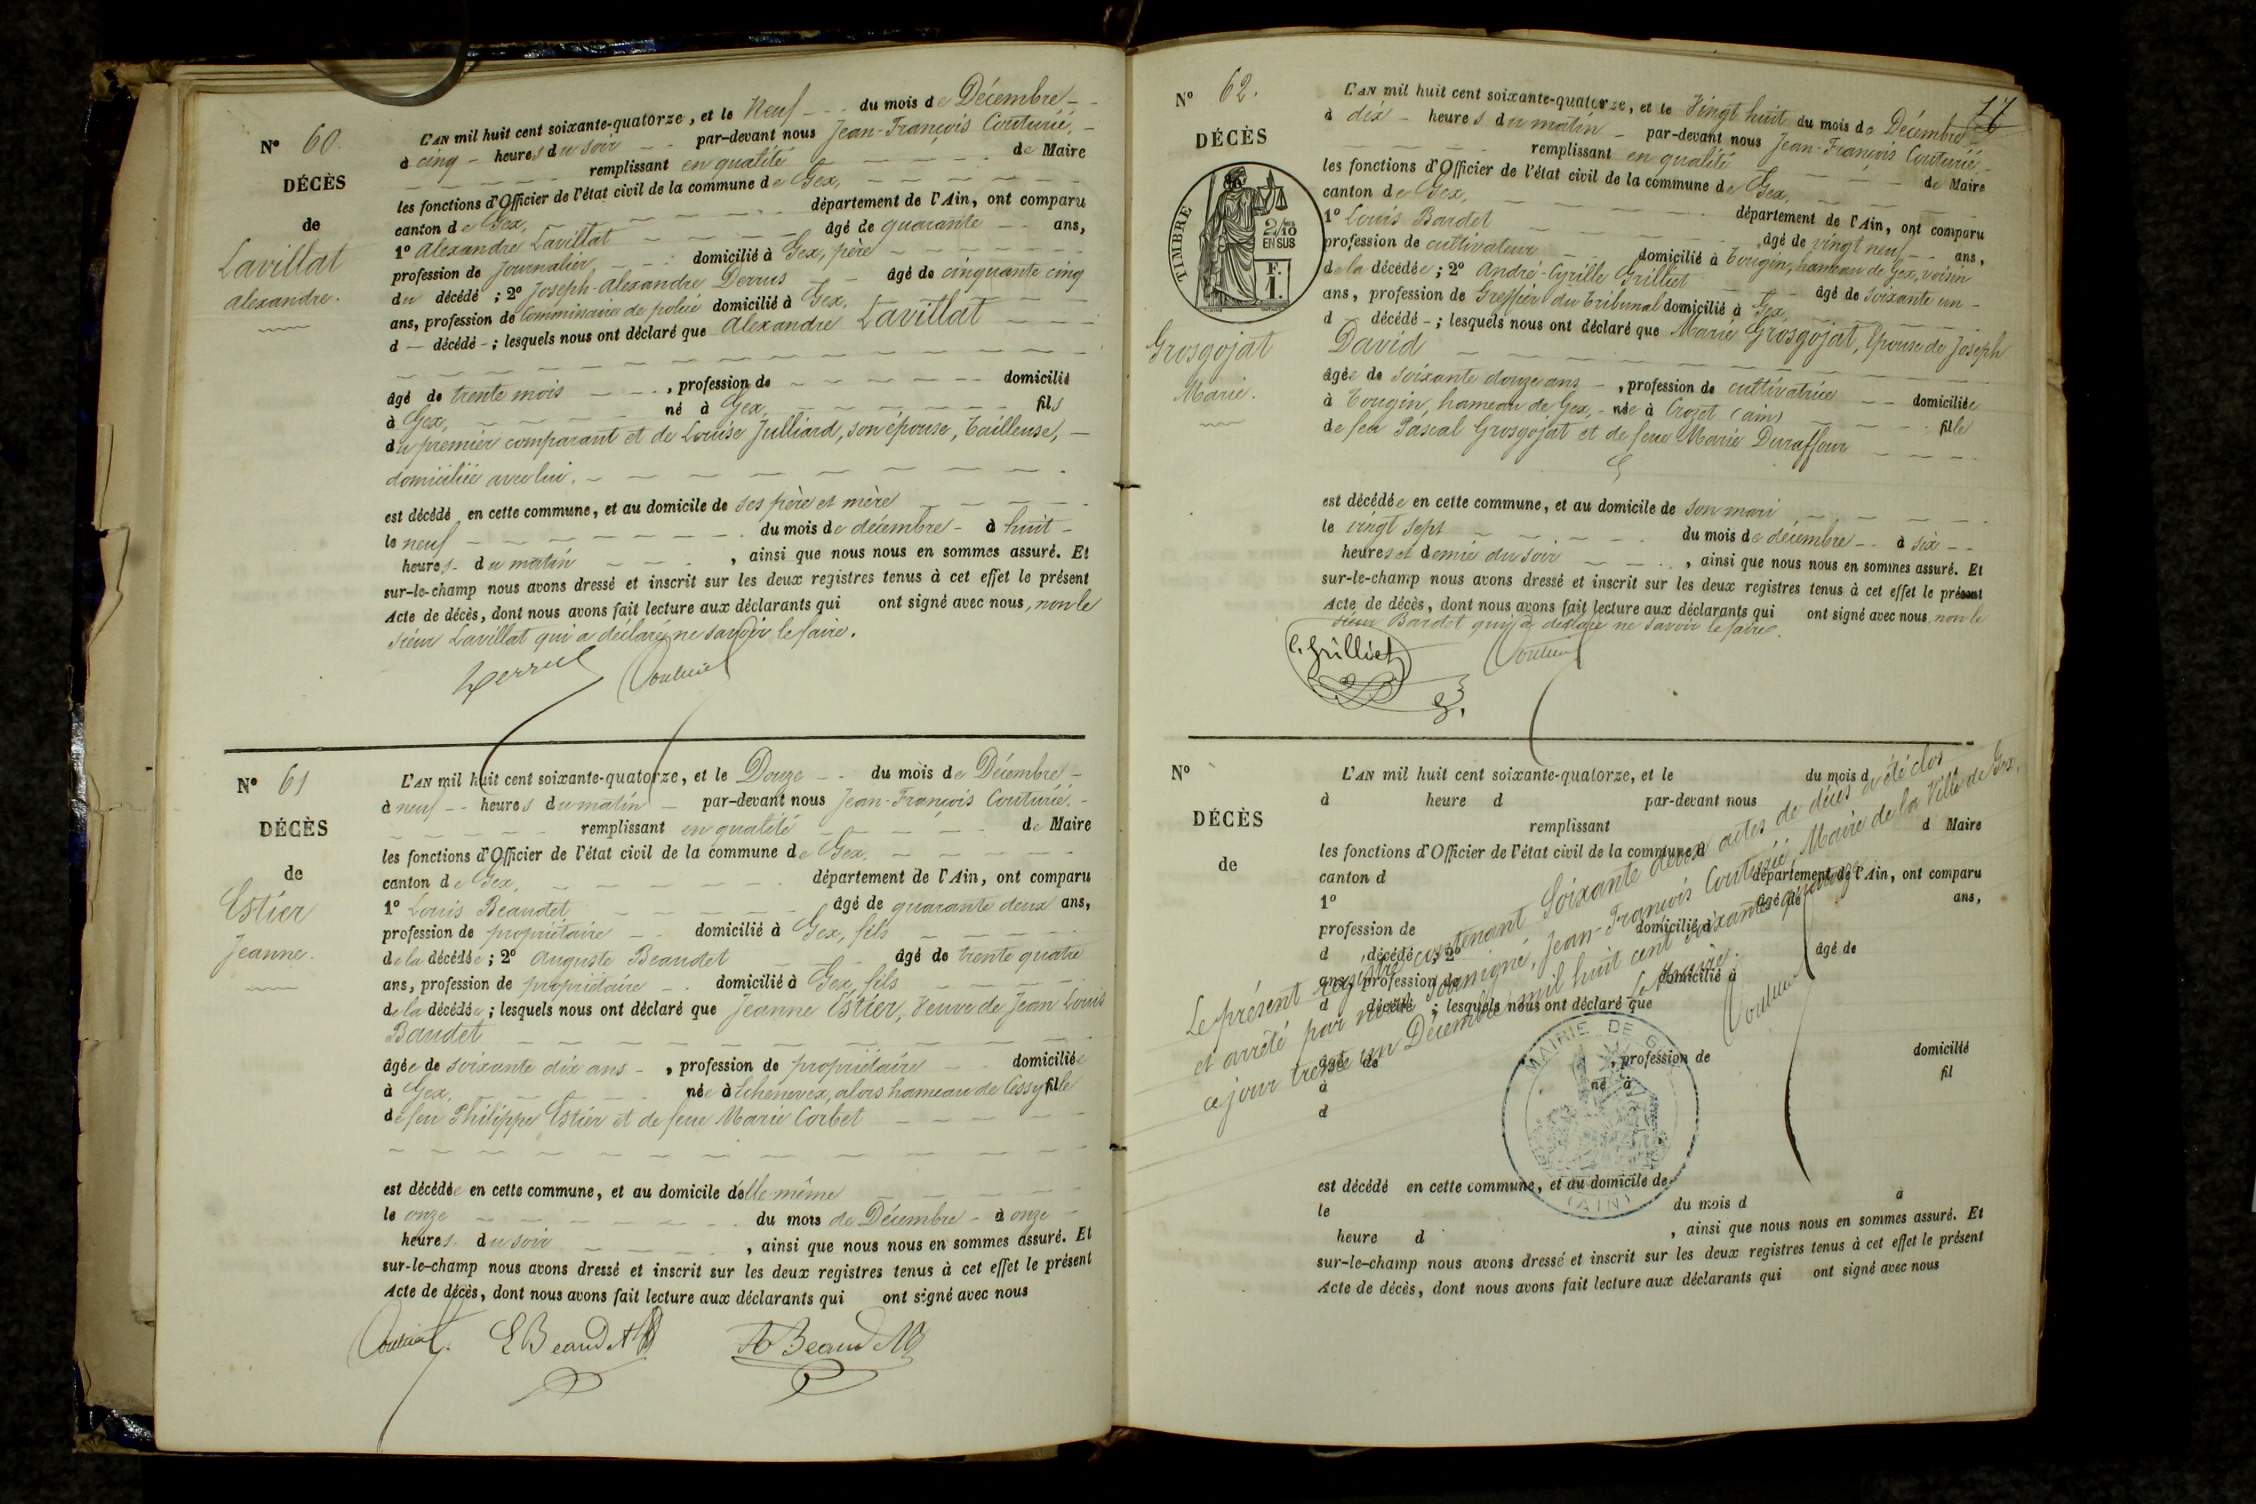 N° 60.
DÉCÈS
de
Lavillat
Alexandre.
L'AN mil huit cent soixante-quatorze, et le Neuf du mois de Décembre
à cinq heures du soir par-devant nous Jean-François Couturié,
remplissant en qualité de Maire
les fonctions d'Officier de l'état civil de la commune de Gex,
canton de Gex, département de l'Ain, ont comparu
1° Alexandre Lavillat âgé de quarante ans,
profession de Journalier domicilié à Gex, père
du décédé ; 2° Joseph-Alexandre Derrus âgé de cinquante cinq
ans, profession de Commissaire de police domicilié à Gex,
d décédé ; lesquels nous ont déclaré que Alexandre Lavillat
âgé de trente mois , profession de domicilié
à Gex, né à Gex, fils
du premier comparant et de Louise Julliard, son épouse, Tailleuse,
domiciliée avec lui.
est décédé en cette commune, et au domicile de ses père et mère
le neuf du mois de décembre à huit
heures du matin , ainsi que nous nous en sommes assuré. Et
sur-le-champ nous avons dressé et inscrit sur les deux registres tenus à cet effet le présent
Acte de décès, dont nous avons fait lecture aux déclarants qui ont signé avec nous, non le
sieur Lavillat qui a déclaré ne savoir le faire.
Derrus Couturié
N° 61
DÉCÈS
de
Estier
Jeanne.
L'AN mil huit cent soixante-quatorze, et le Douze du mois de Décembre
à neuf heures du matin par-devant nous Jean-François Couturié,
remplissant en qualité de Maire
les fonctions d'Officier de l'état civil de la commune de Gex,
canton de Gex, département de l'Ain, ont comparu
1° Louis Beaudet âgé de quarante deux ans,
profession de propriétaire domicilié à Gex, fils
de la décédée ; 2° Auguste Beaudet âgé de trente quatre
ans, profession de propriétaire domicilié à Gex, fils
de la décédée ; lesquels nous ont déclaré que Jeanne Estier, Veuve de Jean Louis
Baudet
âgée de soixante dix ans , profession de propriétaire domiciliée
à Gex, née à Echenevex, alors hameau de Cessy fille
de feu Philippe Estier et de feue Marie Corbet
est décédée en cette commune, et au domicile d'elle-même
le onze du mois de Décembre à onze
heures du soir , ainsi que nous nous en sommes assuré. Et
sur-le-champ nous avons dressé et inscrit sur les deux registres tenus à cet effet le présent
Acte de décès, dont nous avons fait lecture aux déclarants qui ont signé avec nous
Couturié L Beaudet A Beaudet
77
N° 62.
DÉCÈS
TIMBRE
2/10
EN SUS
F.
1.
Grosgojat
Marie.
L'AN mil huit cent soixante-quatorze, et le Vingt huit du mois de Décembre
à dix heures du matin par-devant nous Jean-François Couturié,
remplissant en qualité de Maire
les fonctions d'Officier de l'état civil de la commune de Gex,
canton de Gex, département de l'Ain, ont comparu
1° Louis Bardet âgé de vingt neuf ans,
profession de cultivateur domicilié à Tougin, hameau de Gex, voisin
de la décédée ; 2° André-Cyrille Grilliet âgé de soixante un
ans, profession de Greffier du Tribunal domicilié à Gex,
d décédé ; lesquels nous ont déclaré que Marie Grosgojat, Epouse de Joseph
David
âgée de soixante douze ans , profession de cultivatrice domiciliée
à Tougin, hameau de Gex, née à Crozet (ain) fille
de feu Pascal Grosgojat et de feue Marie Duraffour
est décédée en cette commune, et au domicile de son mari
le vingt sept du mois de décembre à six
heures et demie du soir , ainsi que nous nous en sommes assuré. Et
sur-le-champ nous avons dressé et inscrit sur les deux registres tenus à cet effet le présent
Acte de décès, dont nous avons fait lecture aux déclarants qui ont signé avec nous, non le
sieur Bardet qui a déclaré ne savoir le faire.
C. Grilliet Couturié
N°
DÉCÈS
de
L'AN mil huit cent soixante-quatorze, et le du mois d
à heure d par-devant nous
remplissant d Maire
les fonctions d'Officier de l'état civil de la commune d
canton d département de l'Ain, ont comparu
1° âgé de ans,
profession de domicilié à
d décédé ; 2° âgé de
ans, profession de domicilié à
d décédé ; lesquels nous ont déclaré que
âgé de , profession de domicilié
à né à fil
d
est décédé en cette commune, et au domicile de
le du mois d à
heure d , ainsi que nous nous en sommes assuré. Et
sur-le-champ nous avons dressé et inscrit sur les deux registres tenus à cet effet le présent
Acte de décès, dont nous avons fait lecture aux déclarants qui ont signé avec nous
Le présent registre contenant Soixante deux actes de décès a été clos
et arrêté par nous soussigné, Jean-François Couturié, Maire de la Ville de Gex,
ce jour trente un Décembre mil huit cent soixante quatorze.
Le Maire.
Couturié
MAIRIE DE GEX
(AIN)